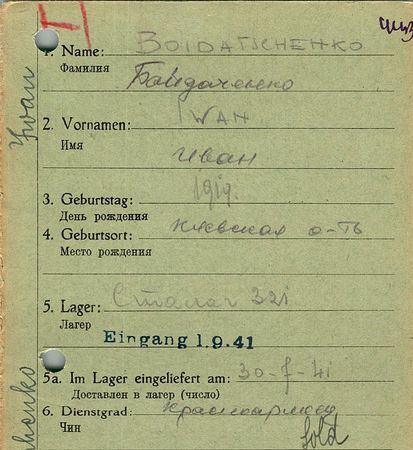 1. Name: BOIDATSCHENKO
Фамилия
Байдаченко
2. Vornamen: IWAN
Имя
Иван
3. Geburtstag: 1919.
День рождения
4. Geburtsort: Киевская о-ть
Место рождения
5. Lager: Сталаг 321
Лагер
Eingang 1.9.41
5a. Im Lager eingeliefert am: 30-7-41
Доставлен в лагер (число)
6. Dienstgrad: Красноармеец
Чин
Sold
Iwan